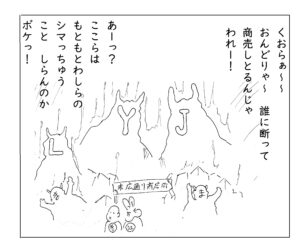 くおらぁ～～
おんどりゃ～　誰に断って
商売しとるんじゃ
われー！
あーっ？
ここらは
もともとわしらの
シマっちゅう
こと　しらんのか
ボケっ！
L
Y
J
ま
ま